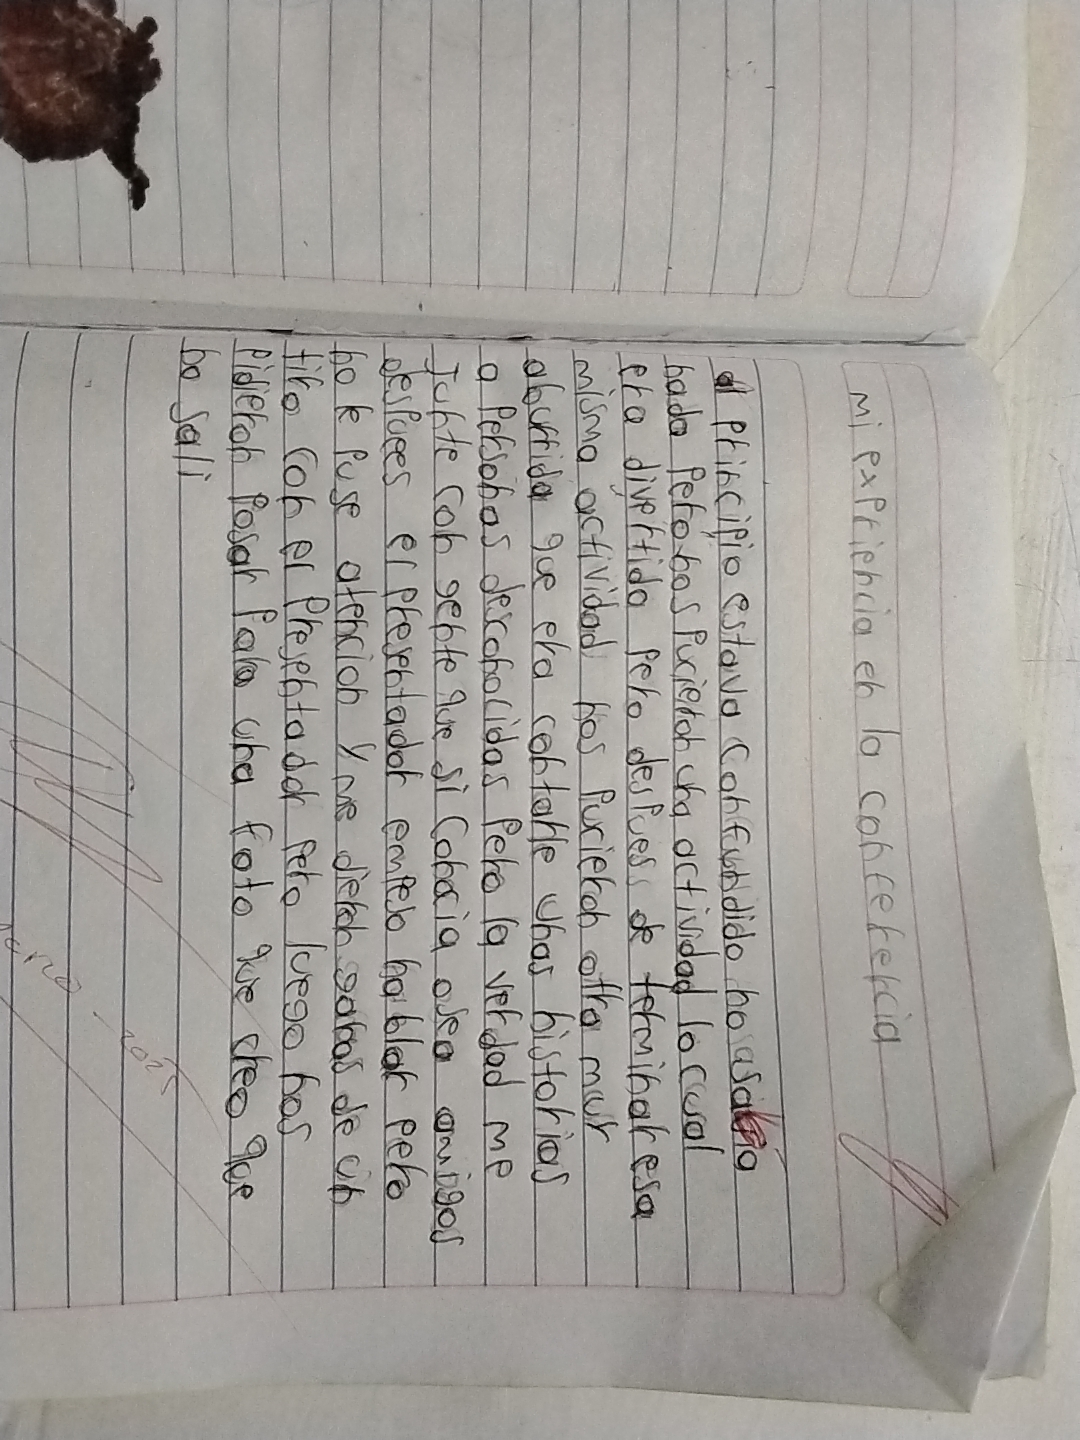 mi expriencia en la conferencia
al principio estava confundido no sabia
nada pero nos pucieron una actividad lo cual
era divertida pero despues de terminar esa
misma actividad nos pucieron otra muy
aburrida que era contarle unas historias
a personas desconocidas pero la verdad me
junte con gente que si conocia osea amigos
despuees el presentador empeso hablar pero
no le puse atencion y me dieron ganas de un
tiro con el presentador pero luego nos
pidieron posar para una foto que creo que
no sali